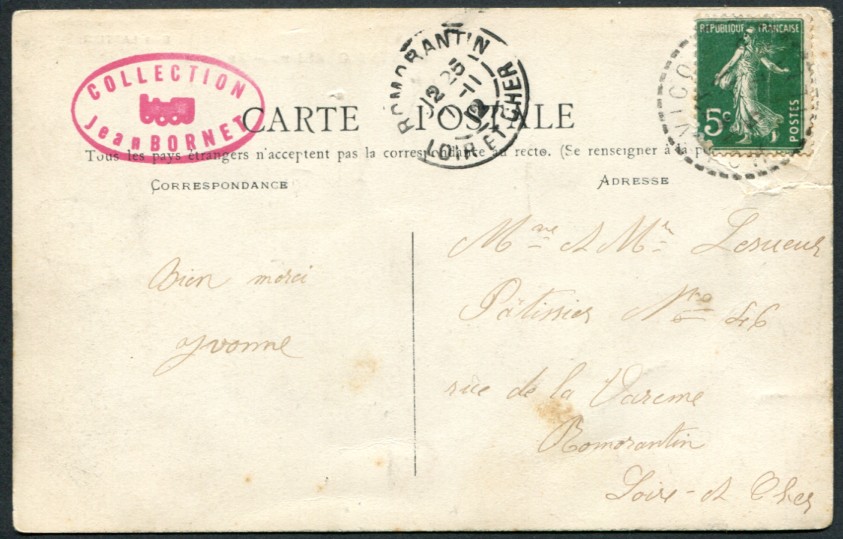 COLLECTION
Jean BORNET
ROMORANTIN
12 25
-11
12
LOIR-ET-CHER
RÉPUBLIQUE FRANÇAISE
5c
POSTES
VICO
CARTE POSTALE
Tous les pays étrangers n'acceptent pas la correspondance au recto. (Se renseigner à la
CORRESPONDANCE
ADRESSE
Bien merci
Yvonne
Mme et Mr Lesueur
Pâtissier Nro 46
rue de la Varenne
Romorantin
Loire-et Cher